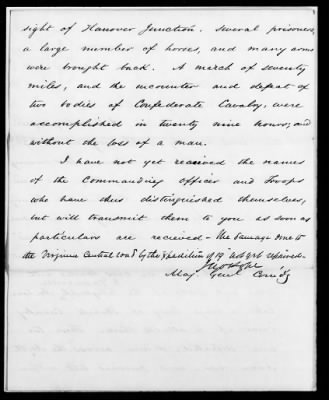 sight of Hanover Junction. Several prisoners,
a large number of horses, and many arms
were brought back. A march of seventy
miles, and the encounter and defeat of
two bodies of Confederate Cavalry, were
accomplished in twenty nine hours, and
without the loss of a man.
I have not yet received the names
of the Commanding officer and Troops
who have thus distinguished themselves,
but will transmit them to you as soon as
particulars are recieved - the damage done to
the Virginia Central road by the Expedition of 19th not yet repaired -
Jno Pope
Maj. Genl Comdg